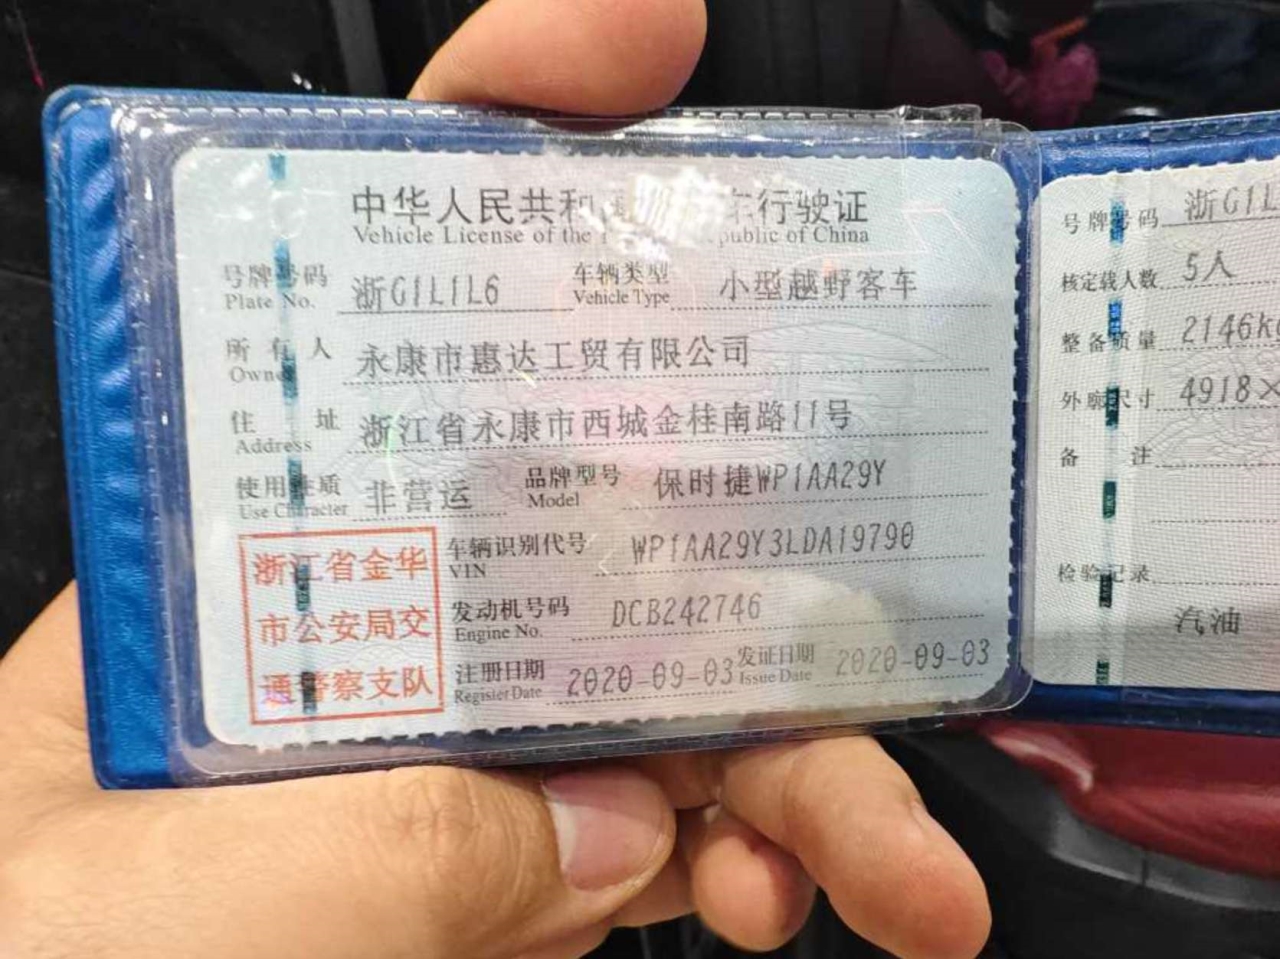 中华人民共和 车行驶证
Vehicle License of the public of China
号牌号码 浙G1L1L6 车辆类型 小型越野客车
Plate No. Vehicle Type
所有人 永康市惠达工贸有限公司
Owner
住址 浙江省永康市西城金桂南路11号
Address
使用性质 非营运 品牌型号 保时捷WP1AA29Y
Use Character Model
浙江省金华
市公安局交
通警察支队
车辆识别代号 WP1AA29Y3LDA19790
VIN
发动机号码 DCB242746
Engine No.
注册日期 2020-09-03 发证日期 2020-09-03
Register Date Issue Date
号牌号码 浙G1L
核定载人数 5人
整备质量 2146kg
外廓尺寸 4918×
备注
检验记录
汽油